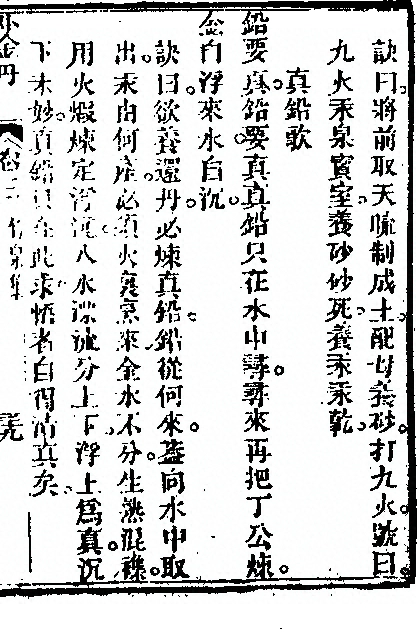 訣曰將前取天硫制成土配母養砂打九火號曰
九火汞泉賓室養砂砂死養汞汞乾
真鉛歌
鉛要真鉛要真真鉛只在水中尋尋來再把丁公煉
金自浮來水自沉
訣曰欲養還丹必煉真鉛鉛從何來葢向水中取
出汞由何產必須火裏煮來金水不分生熟混襍
用火煆煉定清濁入水漂流分上下浮上為真沉
下未妙真鉛只在此求悟者自得清真矣
外金丹
卷三
三九